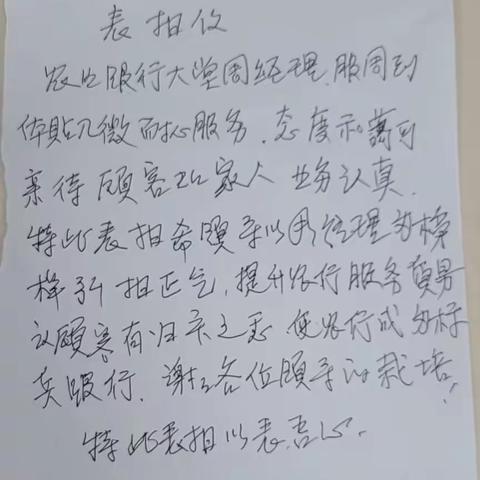 表扬信
农业银行大堂周经理服周到
体贴入微而心服务.态度和蔼可
亲待顾客如家人 业务认真.
特此表扬希领导以周经理为榜
样引扬正气.提升银行服务质
让顾客有归家之 使银行成为标
银行.谢谢各位领导的栽培!
特此表扬以表吾心.